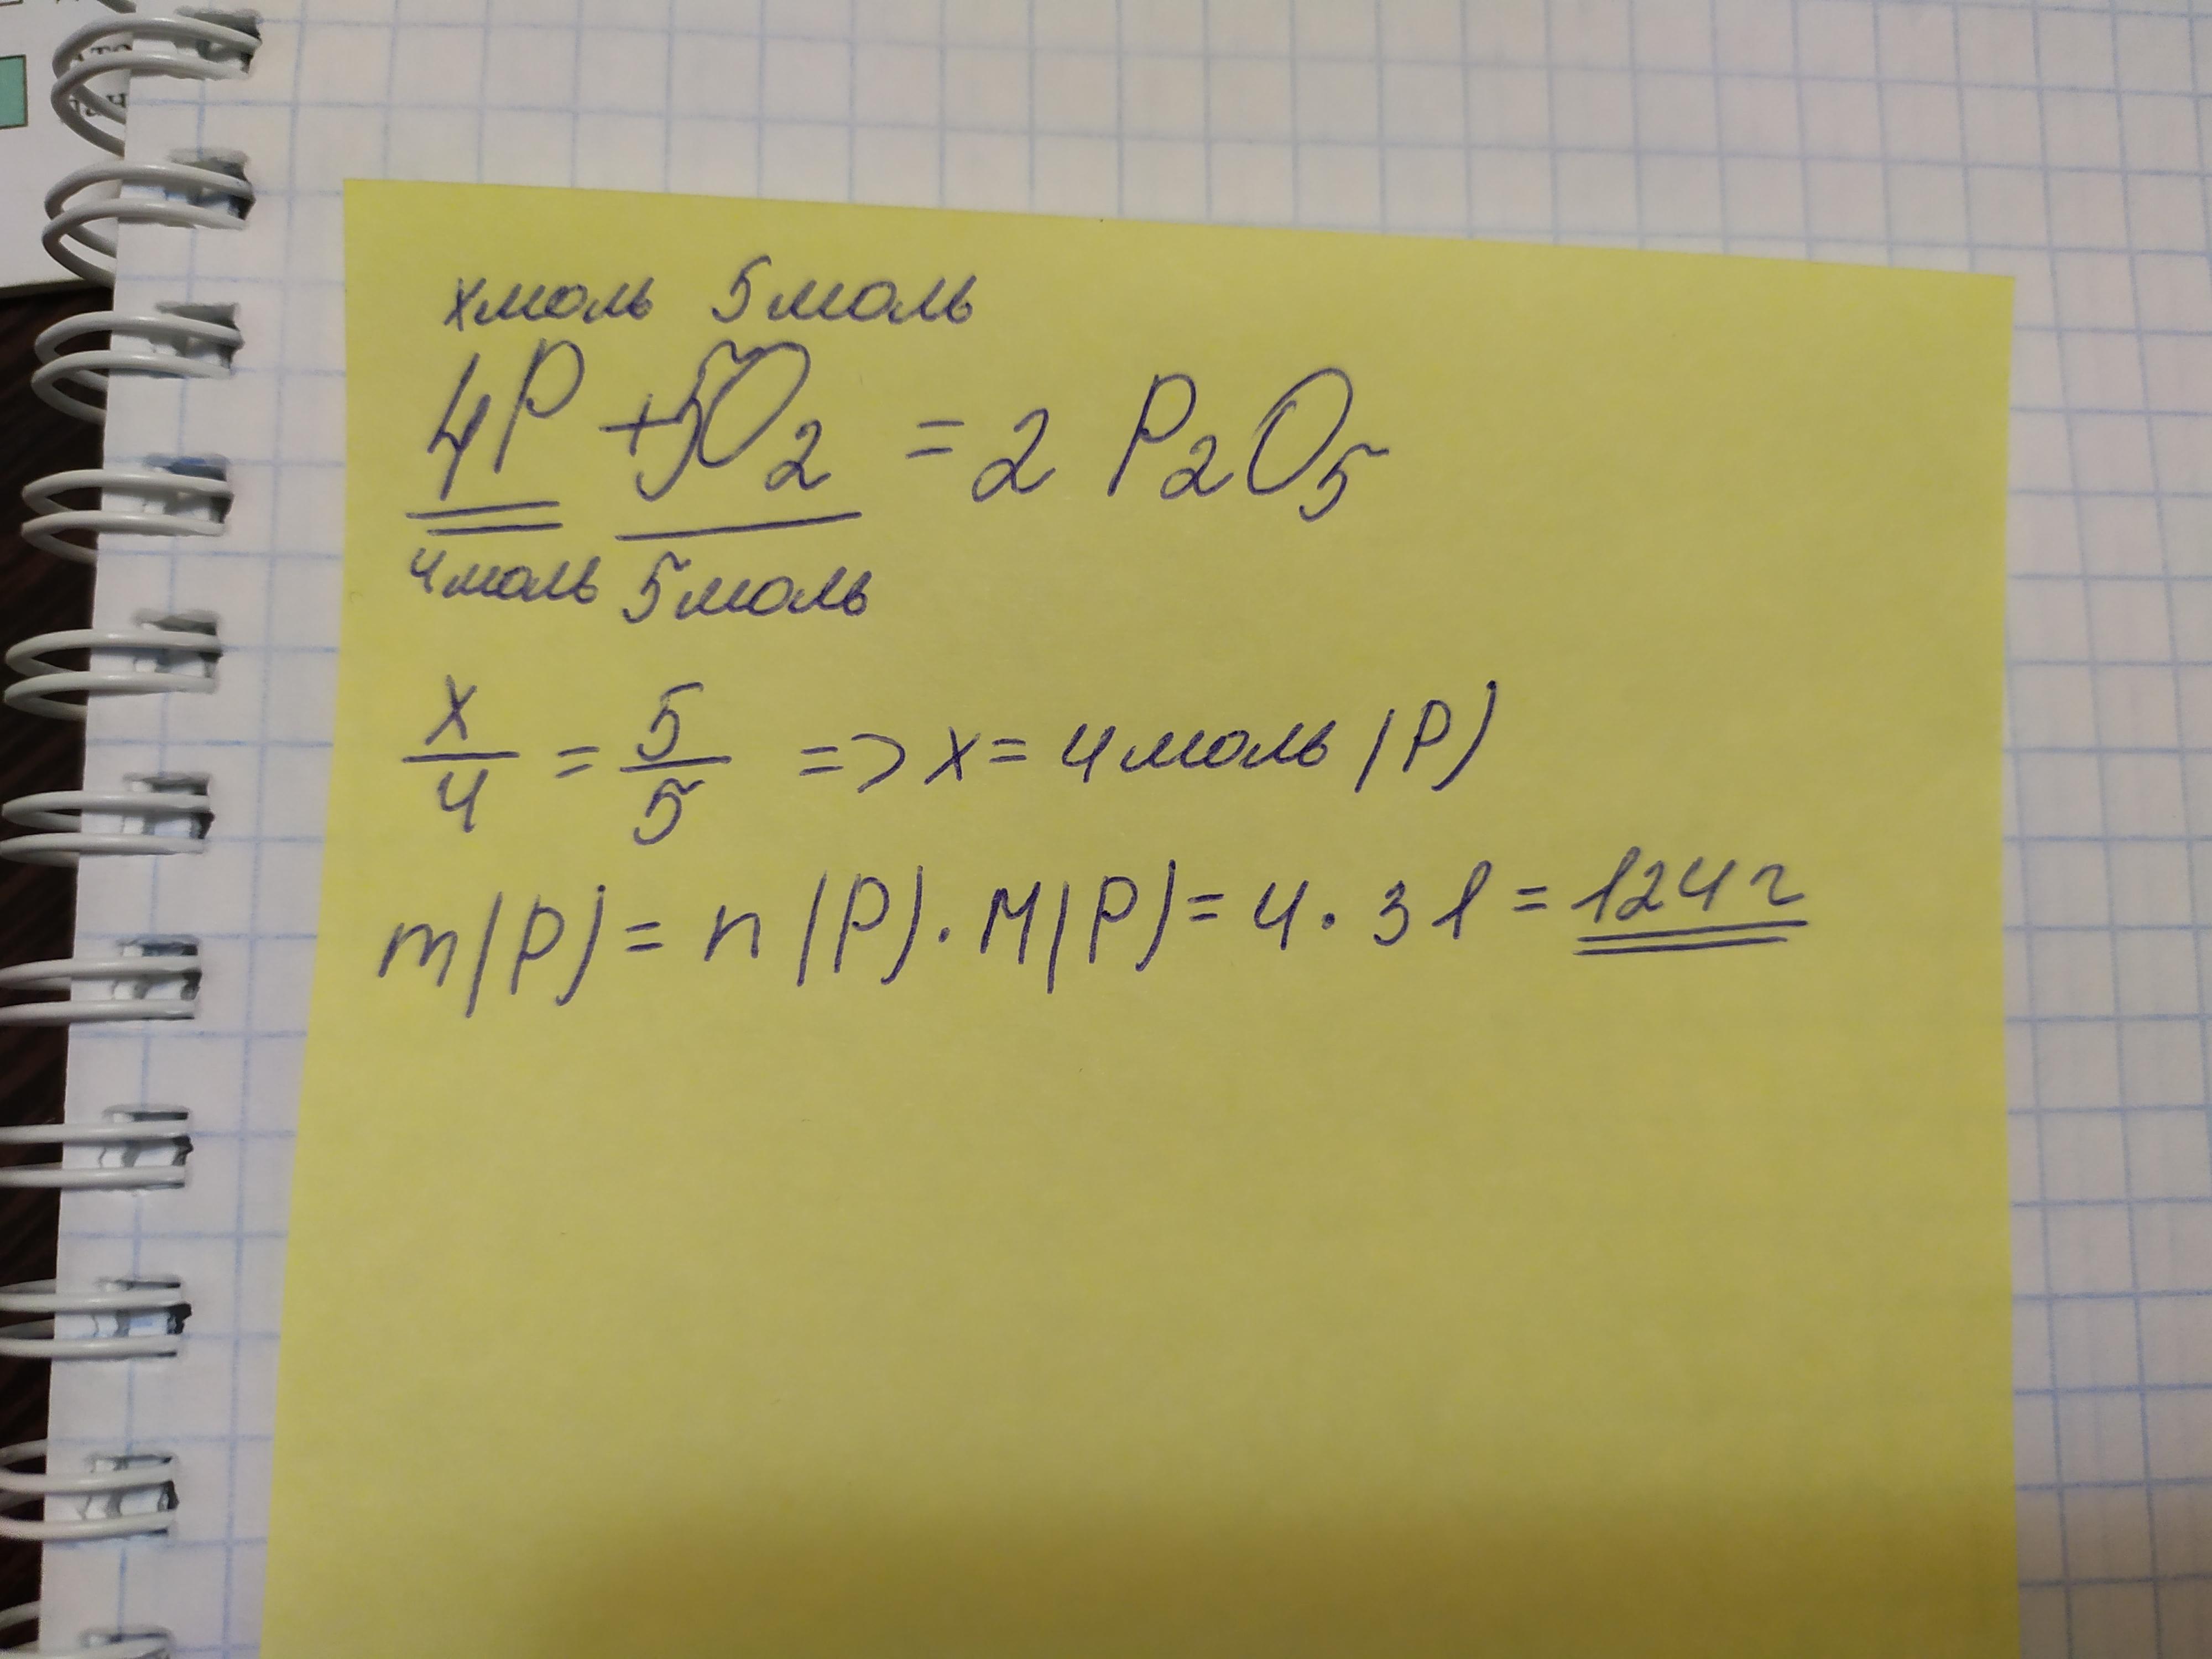 xмоль 5моль
4P + 5O₂ = 2 P₂O₅
4моль 5моль
x/4 = 5/5 => x = 4моль (P)
m(P) = n(P) · M(P) = 4 · 31 = 124г